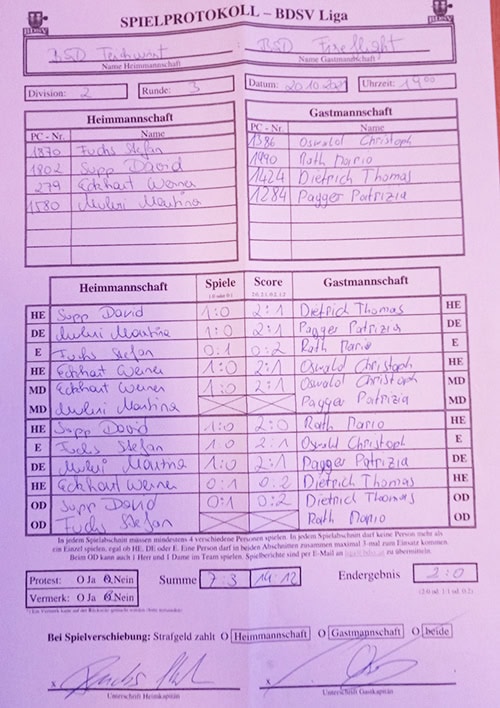 SPIELPROTOKOLL – BDSV Liga
BSD Teichwirt : BSD Firefight
Name Heimmannschaft Name Gastmannschaft
Division: 2 Runde: 3 Datum: 20.10.2021 Uhrzeit: 19 00
Heimmannschaft Gastmannschaft
PC - Nr. Name PC - Nr. Name
1870 Fuchs Stefan 1386 Oswald Christoph
1802 Supp David 1490 Roth Mario
279 Eckhart Werner 1424 Dietrich Thomas
1580 Martina 1284 Pagger Patrizia
Heimmannschaft Spiele Score Gastmannschaft
HE Supp David 1:0 2:1 Dietrich Thomas HE
DE Martina 1:0 2:1 Pagger Patrizia DE
E Fuchs Stefan 0:1 0:2 Roth Mario E
HE Eckhart Werner 1:0 2:1 Oswald Christoph HE
MD Eckhart Werner 1:0 2:1 Oswald Christoph MD
MD Martina Pagger Patrizia MD
HE Supp David 1:0 2:0 Roth Mario HE
E Fuchs Stefan 1:0 2:1 Oswald Christoph E
DE Martina 1:0 2:1 Pagger Patrizia DE
HE Eckhart Werner 0:1 0:2 Dietrich Thomas HE
OD Supp David 0:1 0:2 Dietrich Thomas OD
OD Fuchs Stefan Roth Mario OD
In jedem Spielabschnitt müssen mindestens 4 verschiedene Personen spielen. In jedem Spielabschnitt darf keine Person mehr als
ein Einzel spielen, egal ob HE, DE oder E. Eine Person darf in beiden Abschnitten zusammen maximal 3-mal zum Einsatz kommen.
Beim OD kann auch 1 Herr und 1 Dame im Team spielen. Spielberichte sind per E-Mail an zu übermitteln.
Protest: O Ja O Nein Summe 7:3 14:12 Endergebnis 2:0
Vermerk: O Ja O Nein (2:0 od. 1:1 od. 0:2)
Bei Spielverschiebung: Strafgeld zahlt O Heimmannschaft O Gastmannschaft O beide
x x
Unterschrift Heimkapitän Unterschrift Gastkapitän